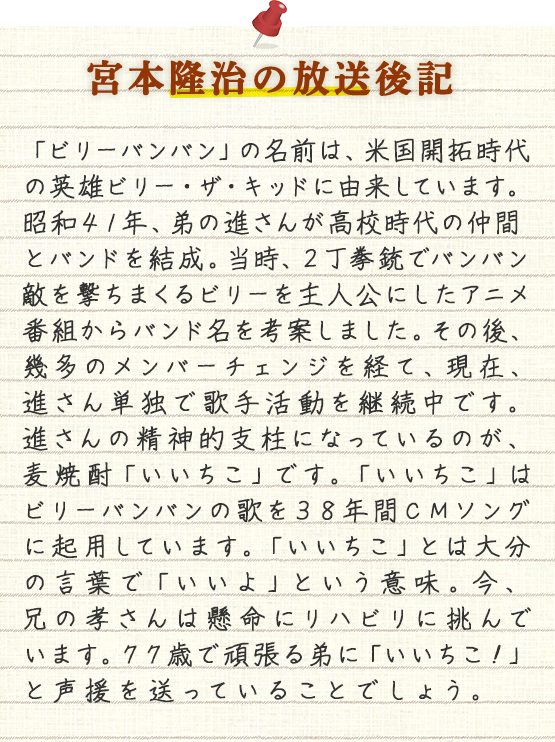 宮本隆治の放送後記
「ビリーバンバン」の名前は、米国開拓時代
の英雄ビリー・ザ・キッドに由来しています。
昭和41年、弟の進さんが高校時代の仲間
とバンドを結成。当時、2丁拳銃でバンバン
敵を撃ちまくるビリーを主人公にしたアニメ
番組からバンド名を考案しました。その後、
幾多のメンバーチェンジを経て、現在、
進さん単独で歌手活動を継続中です。
進さんの精神的支柱になっているのが、
麦焼酎「いいちこ」です。「いいちこ」は
ビリーバンバンの歌を38年間CMソング
に起用しています。「いいちこ」とは大分
の言葉で「いいよ」という意味。今、
兄の孝さんは懸命にリハビリに挑んで
います。77歳で頑張る弟に「いいちこ!」
と声援を送っていることでしょう。